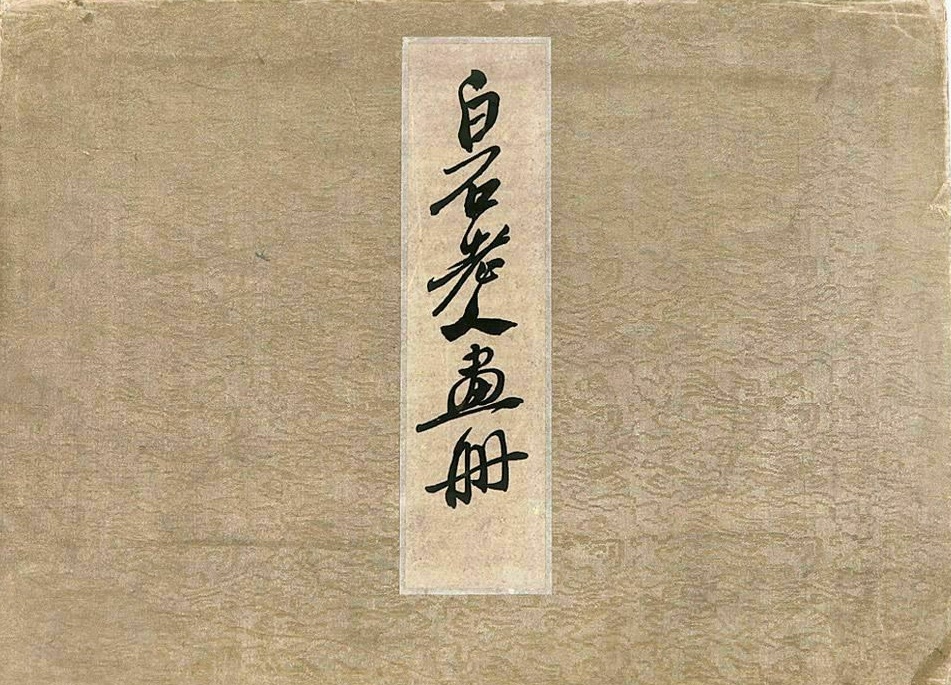 白石老人画册